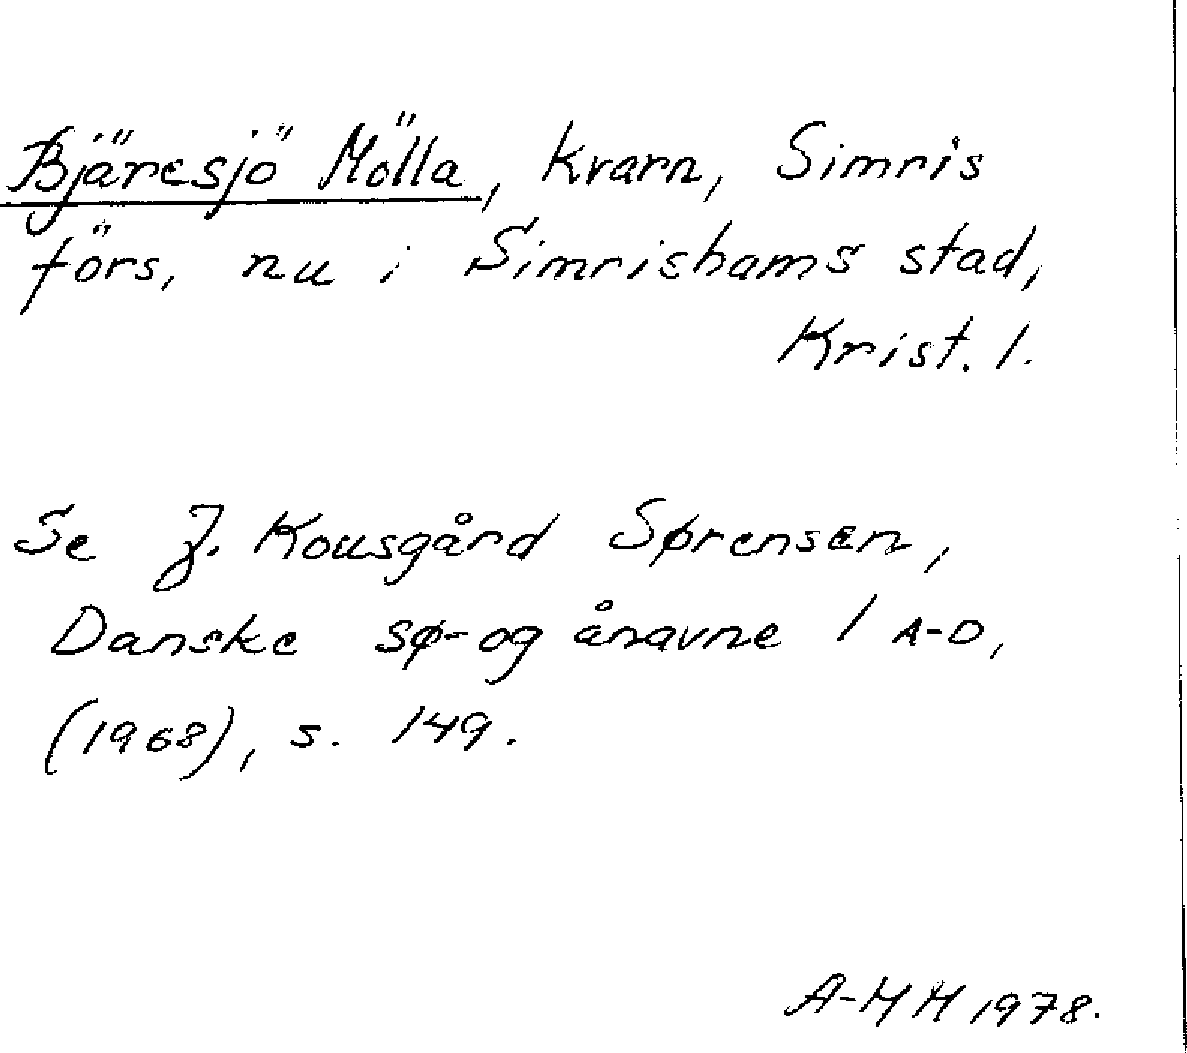 Bjäresjö Mölla, kvarn, Simris
förs, nu i Simrishams stad,
Krist. l.
Se J. Kousgård Sørensen,
Danske sø- og ånavne 1 A-D,
(1968), s. 149.
A-MH 1978.